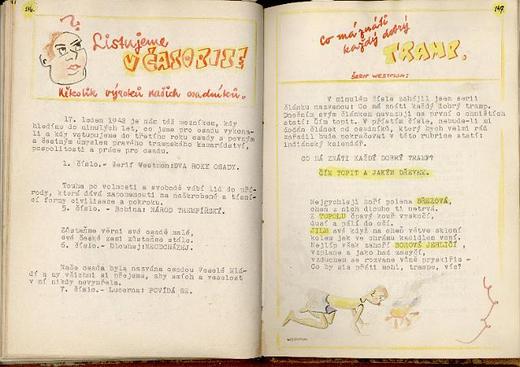 146.
?
Listujeme
V ČASOPISE
Několik výroků našich osadníků.
17. leden 1943 je nám též mezníkem, kdy
hledíme do minulých let, co jsme pro osadu vykona-
li a kdy vstupujeme do třetího roku osady s pevným
a čestným úmyslem pravého trampského kamarádství,
pospolitosti a práce pro osadu.
1. číslo.- Šerif Westmon:DVA ROKY OSADY.
Touha po volnosti a svobodě vábí lid do pří-
rody, která dává zapomenouti na naškrobené a tísní-
cí formy civilisace a pokroku.
5. číslo. - Bobina: NÁROD TREMPÍŘSKÝ.
Zůstaňme věrni své osadě malé,
své České zemi zůstaňme stále.
6. číslo.- Dlouhej:NEODCHÁZEJ.
Naše osada byla nazvána osadou Veselé Mlá-
dí a my všichni si přejeme, aby smích a veselost
v ní nikdy nevymřela.
7. číslo.- Lucerna: POVÍDÁ SE.
147.
Co má znáti
každý dobrý
TRAMP.
ŠERIF WESTMON:
V minulém čísle zahájil jsem serii
článků nazvanou: Co má znáti každý dobrý tramp.
Dnešním svým článkem navazuji na první o ohništích
statí: Čím topit. V příštím čísle, nebude-li mi
dodán článek od osadníků, který bych velmi rád
zařadil bude pokračovat v této rubrice stať:
indiánský kalendář.
CO MÁ ZNÁTI KAŽDÝ DOBRÝ TRAMP?
ČÍM TOPIT A JAKÝM DŘEVEM.
Nejrychleji hoří polena BŘEZOVÁ,
oheň z nich dlouho ti netrvá.
Z TOPOLU čpavý kouř vyskočí,
dusí a pálí do očí.
JILM své když na oheň větve skloní
kolem jak ve chrámu kadidlem voní.
Nejlíp však zahoří BOROVÁ JEHLIČÍ,
vzplane a jako had zasyčí,
vzduchem se rozvane vůně pryskyřic -
Co by sis přáti mohl, trampe, víc?
WESTMON